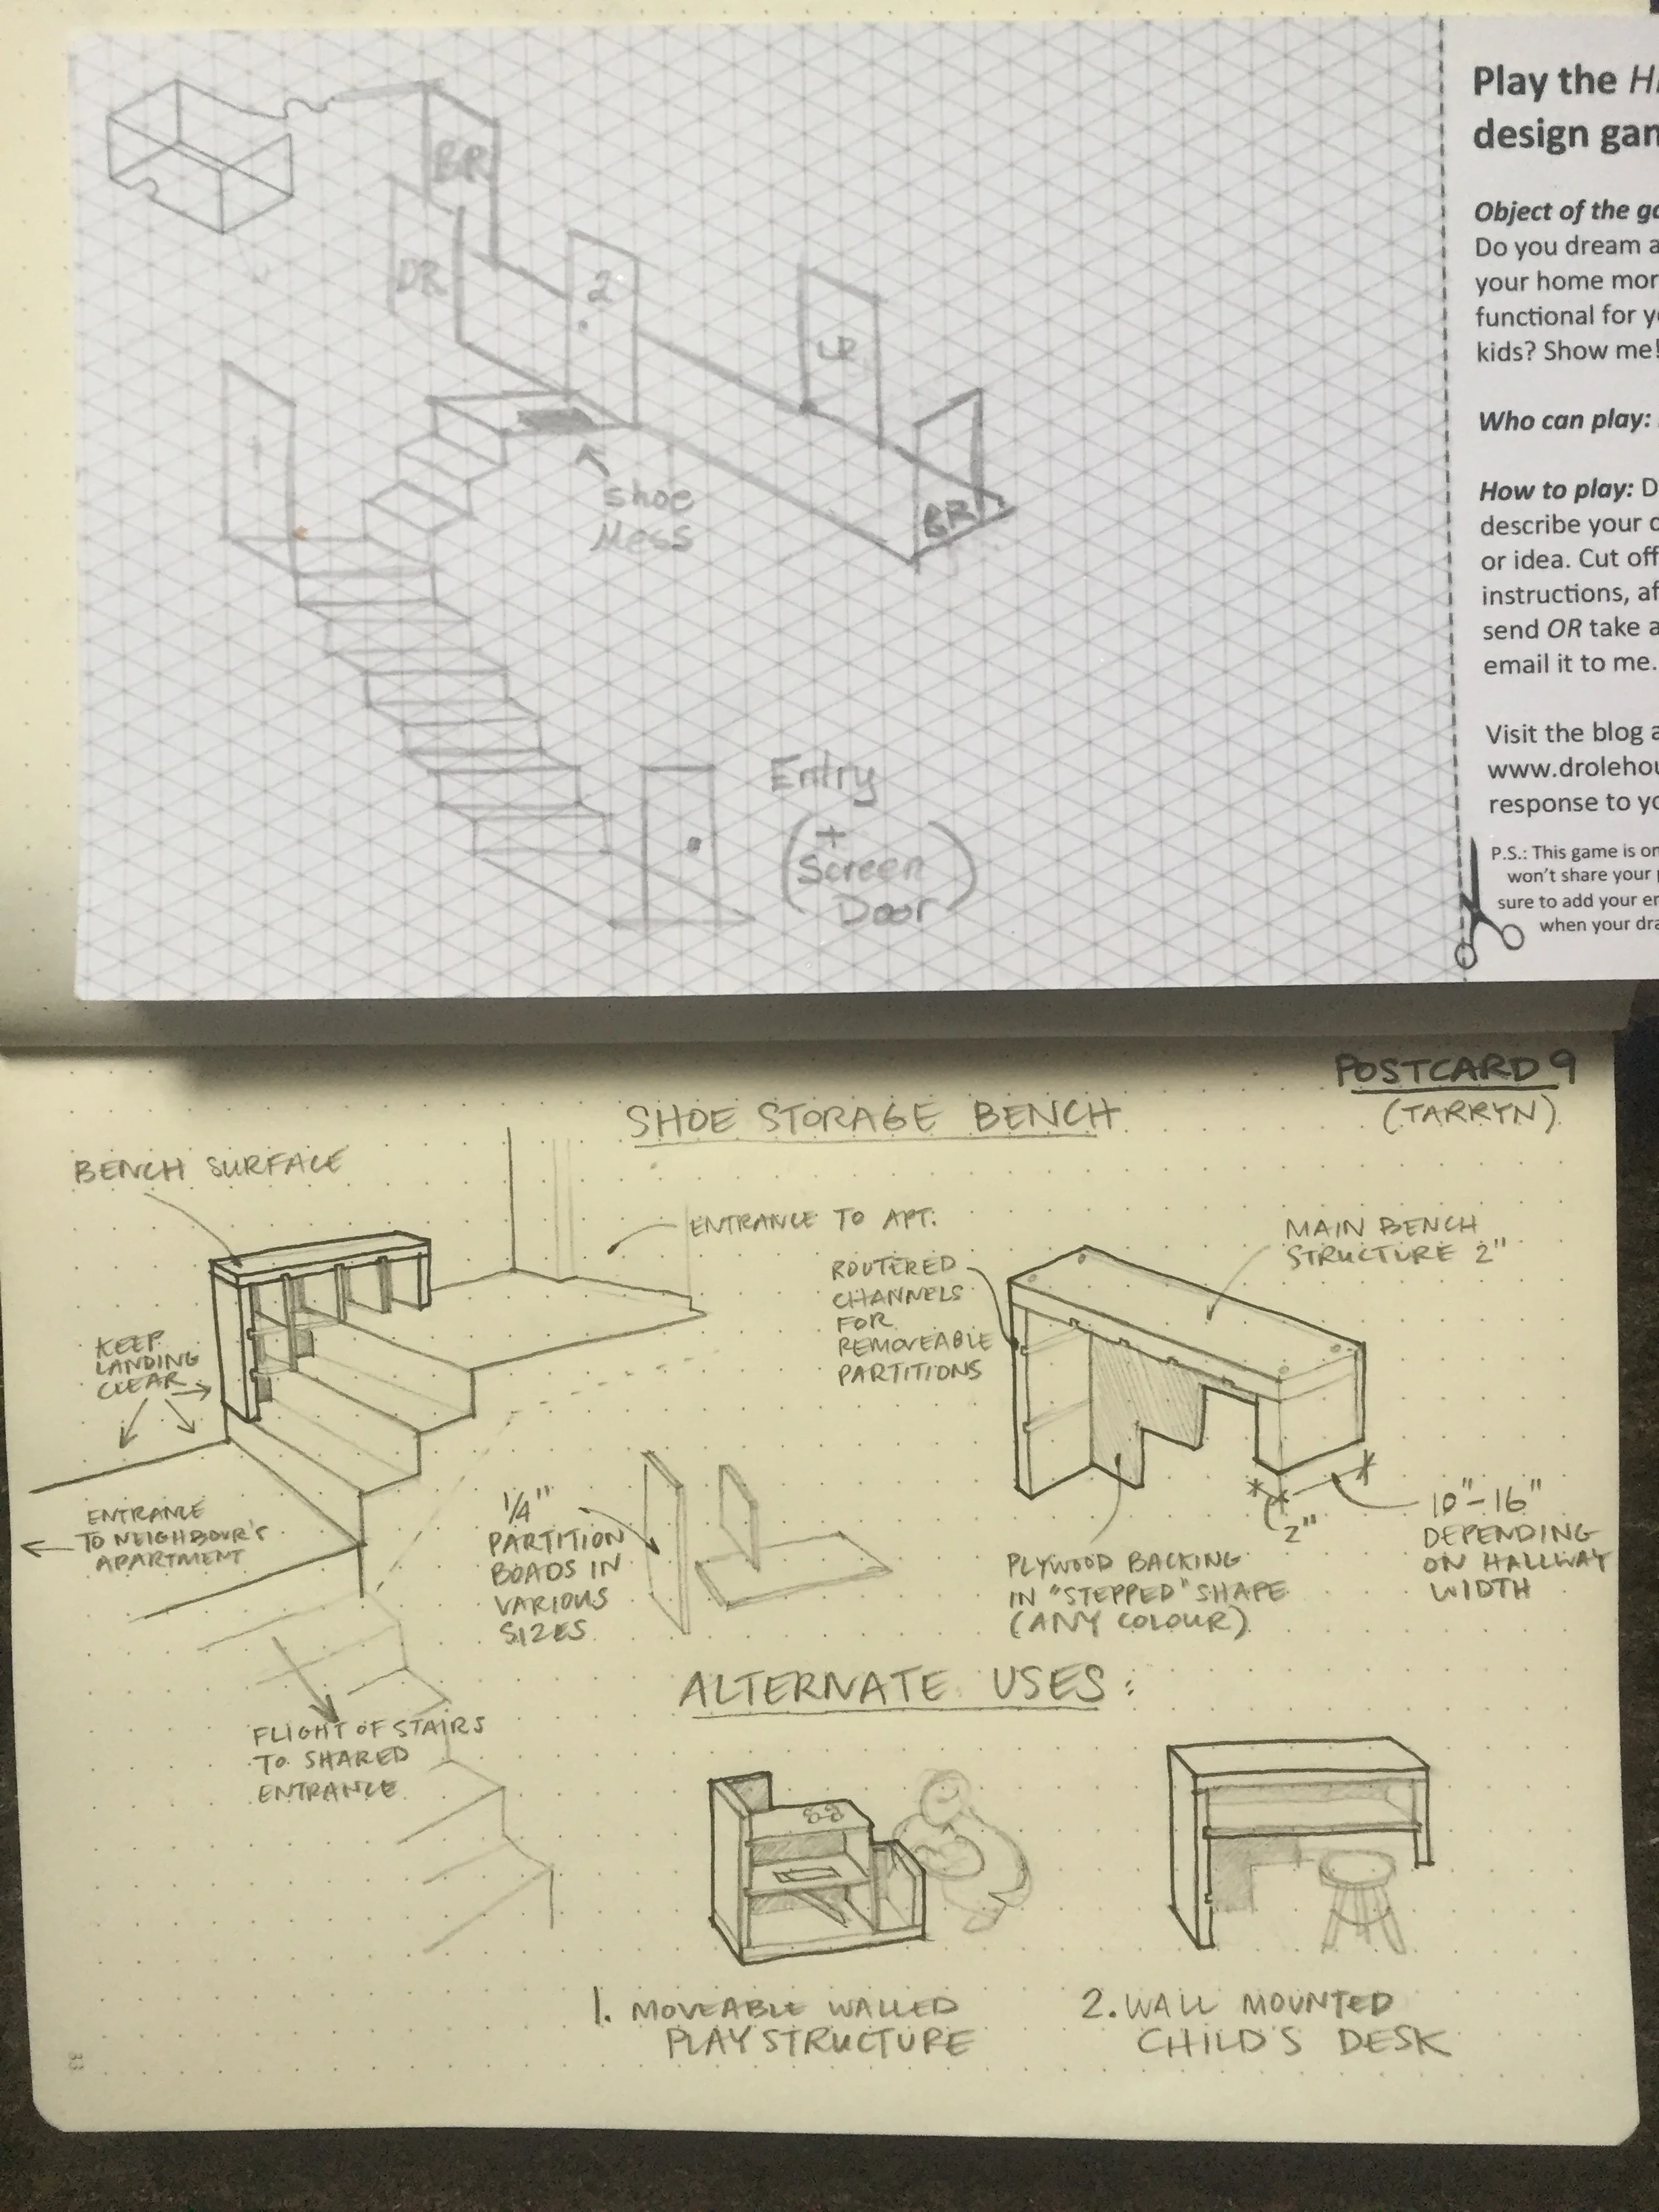 BR
DR
2
LR
1
BR
shoe
Mess
Entry
(+
Screen
Door)
Play the
design
Object of the
Do you dream
your home
functional for
kids? Show me!
Who can play:
How to play:
describe your
or idea. Cut off
instructions,
send OR take a
email it to me.
Visit the blog
response to
P.S.: This game is
won't share your
sure to add your
when your
POSTCARD 9
(TARRYN)
SHOE STORAGE BENCH
BENCH SURFACE
ENTRANCE TO APT.
MAIN BENCH
STRUCTURE 2"
ROUTERED
CHANNELS
FOR
REMOVEABLE
PARTITIONS
KEEP
LANDING
CLEAR
ENTRANCE
TO NEIGHBOUR'S
APARTMENT
1/4"
PARTITION
BOADS IN
VARIOUS
SIZES
PLYWOOD BACKING
IN "STEPPED" SHAPE
(ANY COLOUR)
2"
10"-16"
DEPENDING
ON HALLWAY
WIDTH
FLIGHT OF STAIRS
TO SHARED
ENTRANCE
ALTERNATE USES:
1. MOVEABLE WALLED
PLAY STRUCTURE
2. WALL MOUNTED
CHILD'S DESK